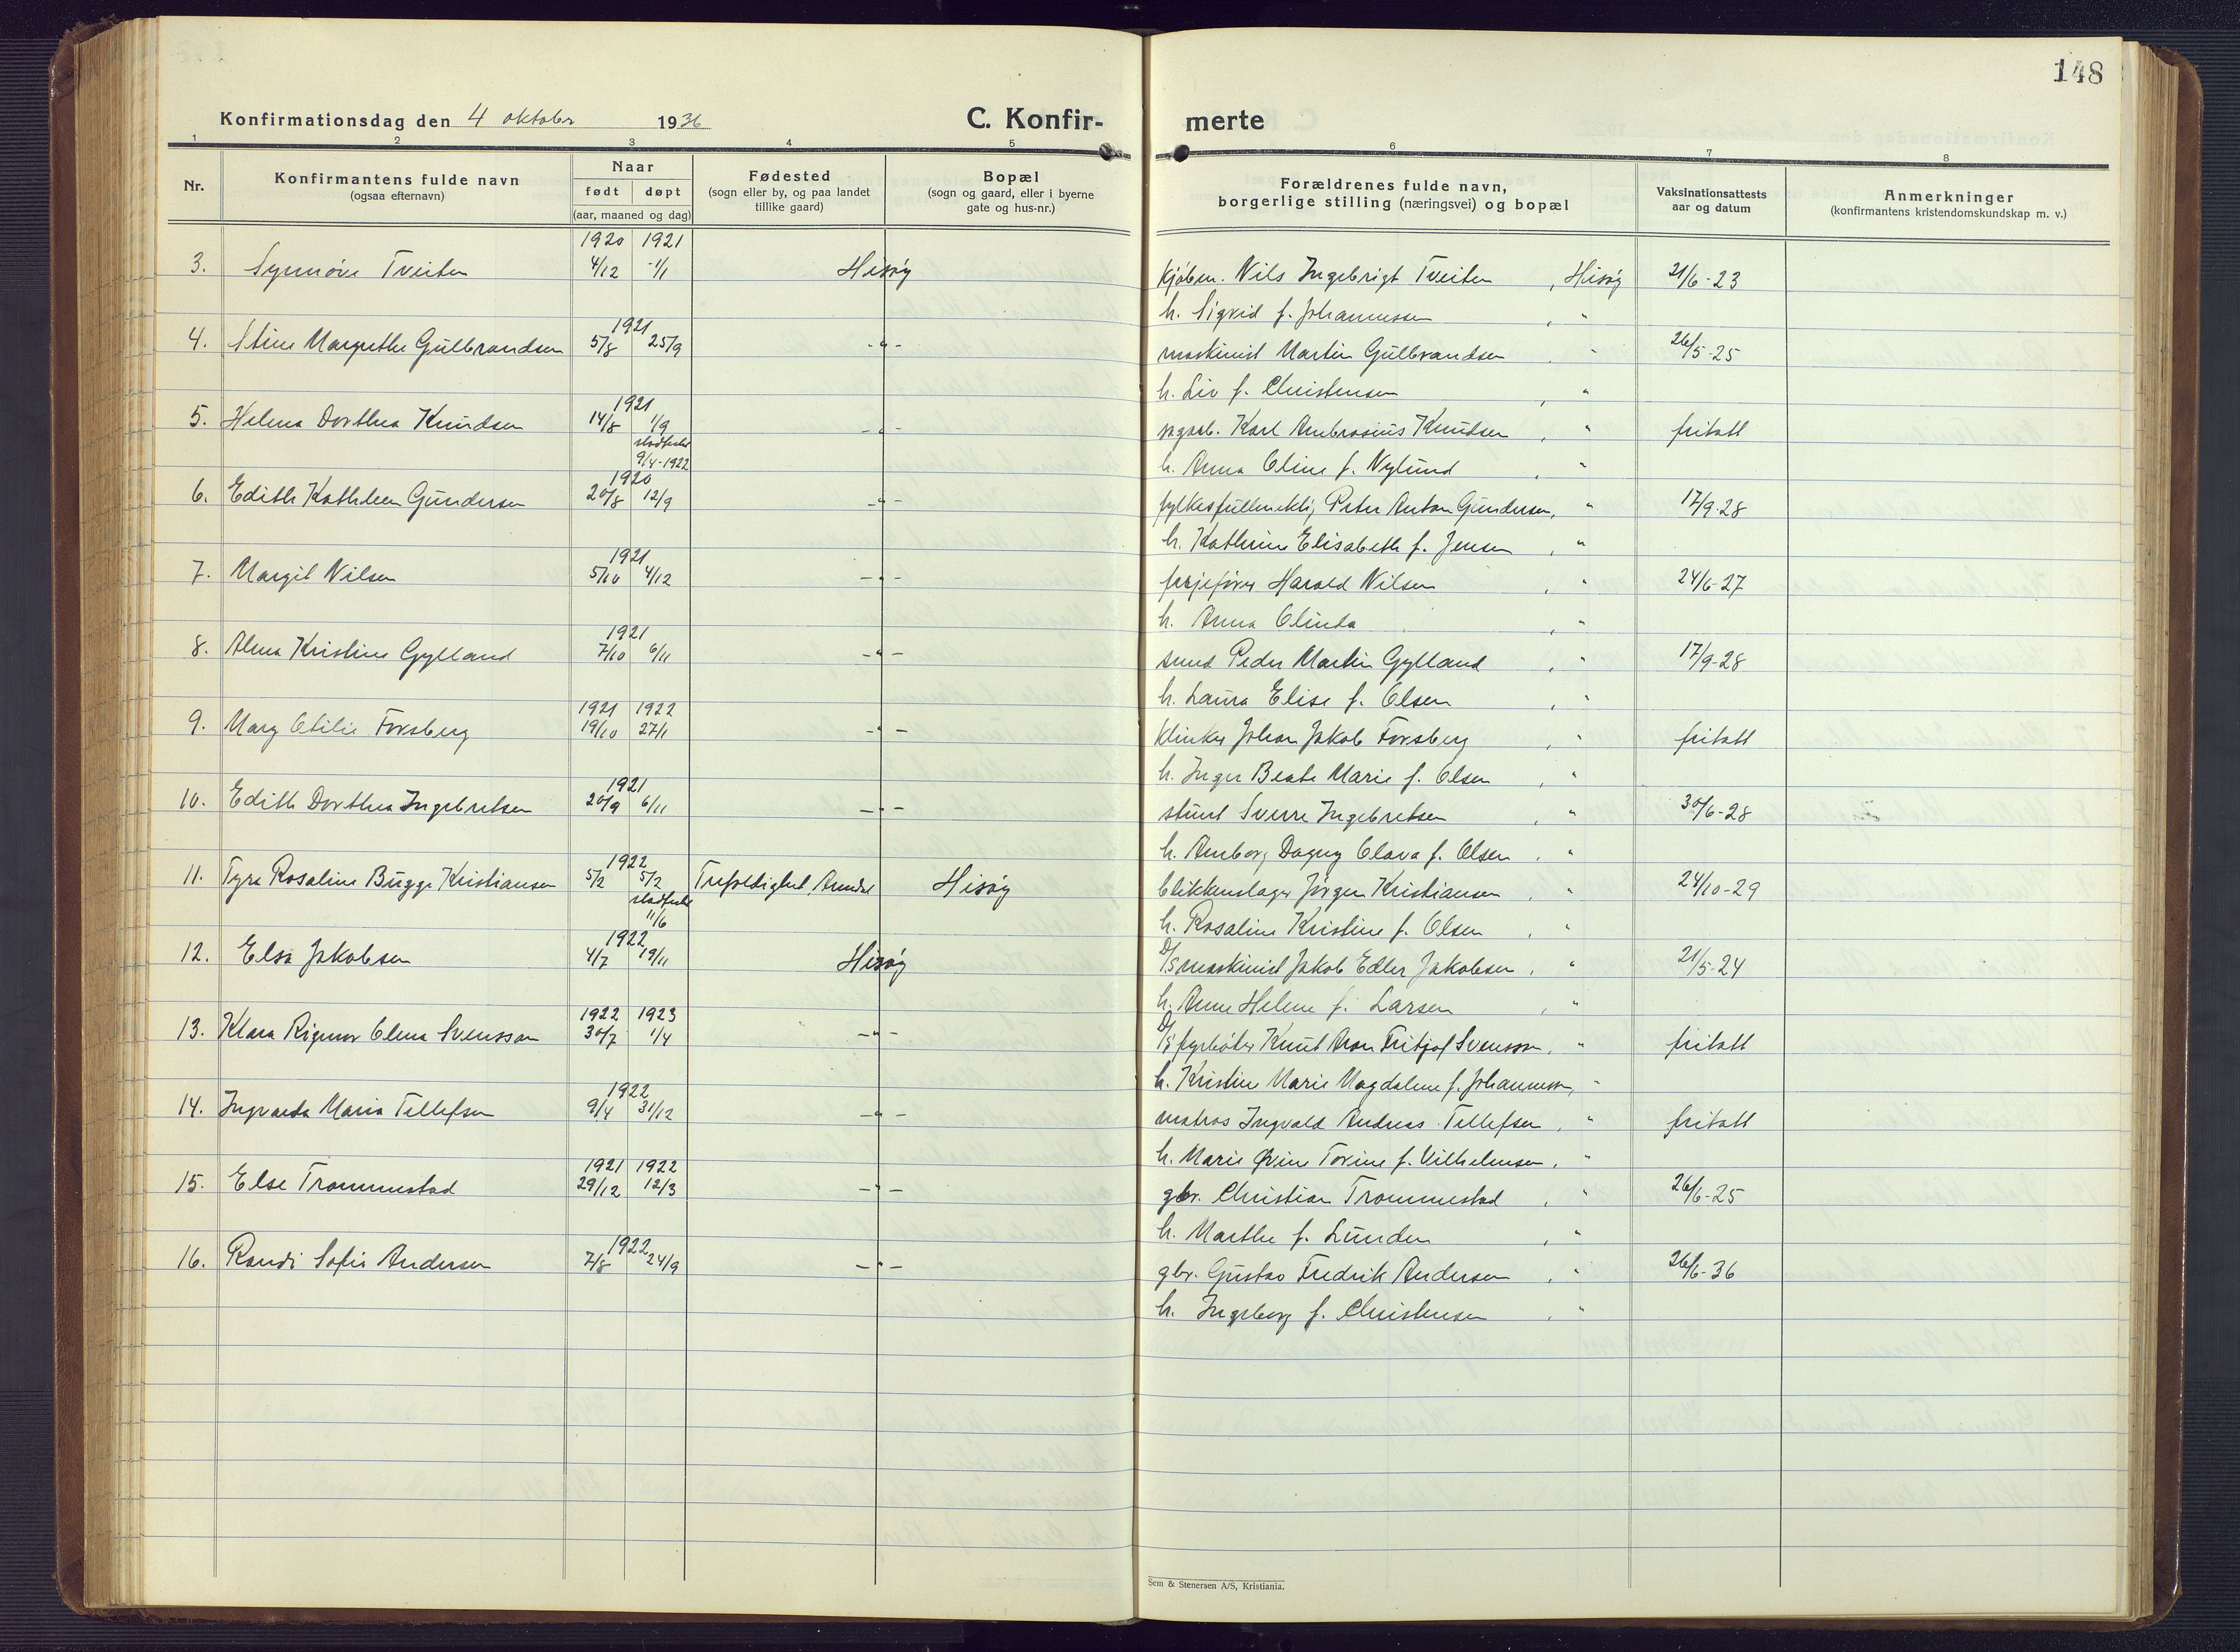 148
Konfirmationsdag den 4 oktober 1936
C. Konfir-
merte
1 2 3 4 5 6 7 8
Nr.
Konfirmantens fulde navn
(ogsaa efternavn)
Naar
født døpt
(aar, maaned og dag)
Fødested
(sogn eller by, og paa landet
tillike gaard)
Bopæl
(sogn og gaard, eller i byerne
gate og hus-nr.)
Forældrenes fulde navn,
borgerlige stilling (næringsvei) og bopæl
Vaksinationsattests
aar og datum
Anmerkninger
(konfirmantens kristendomskundskap m. v.)
1920 1921
3. Synnøve Tveiten 4/12 1/1 Hisøy Kjøbm. Nils Ingebrigt Tveiten, Hisøy 21/6-23
h. Sigrid f. Johannessen, "
1921
4. Stine Margrethe Gulbrandsen 5/8 25/9 -"- maskinist Martin Gulbrandsen, " 26/5-25
h. Liv f. Christensen, "
1921
5. Helena Dorthea Knudsen 14/8 1/9 -"- sagarb. Karl Ambrosius Knudsen, " fritatt
stadfestet
9/4-1922
h. Anna Oline f. Nylund, "
1920
6. Edith Kathleen Gundersen 20/8 12/9 -"- Peter Anton Gundersen, " 17/9-28
h. Kathrine Elisabeth f. Jensen, "
1921
7. Margit Nilsen 5/10 4/12 -"- ferjefører Harald Nilsen, " 24/6-27
h. Anna Olinda, "
1921
8. Alma Kristine Gylland 7/10 6/11 -"- smed Peder Martin Gylland, " 17/9-28
h. Laura Elise f. Olsen, "
1921 1922
9. Mary Otilie Forsberg 19/10 27/1 -"- klinker Johan Jakob Forsberg, " fritatt
h. Inger Beate Marie f. Olsen, "
1921
10. Edith Dorthea Ingebretsen 20/9 6/11 -"- stuert Sverre Ingebretsen, " 30/6-28
h. Amborg Dagny Olava f. Olsen, "
1922
11. Tyra Rosaline Bugge Kristiansen 5/2 5/2 Trefoldighet, Arendal Hisøy blikkenslager Jørgen Kristiansen, " 24/10-29
stadfestet
11/6
h. Rosaline Kristine f. Olsen, "
1922
12. Elsa Jakobsen 4/7 19/11 Hisøy D/S maskinist Jakob Edler Jakobsen, " 21/5-24
h. Anne Helene f. Larsen, "
1922 1923
13. Klara Rigmor Olena Svensson 30/7 1/4 -"- D/S fyrbøter Knut Aron Fritjof Svensson, " fritatt
h. Kristine Marie Magdalene f. Johannessen, "
1922
14. Ingvarda Maria Tellefsen 9/4 31/12 -"- matros Ingvald Andreas Tellefsen, " fritatt
h. Marie Øvine Tovine f. Vilhelmsen, "
1921 1922
15. Else Trommestad 29/12 12/3 -"- gbr. Christian Trommestad, " 26/6-25
h. Marthe f. Lunden, "
1922
16. Randi Sofie Andersen 7/8 24/9 -"- gbr. Gustav Fredrik Andersen, " 26/6-36
h. Ingeborg f. Christensen, "
Sem & Stenersen A/S, Kristiania.